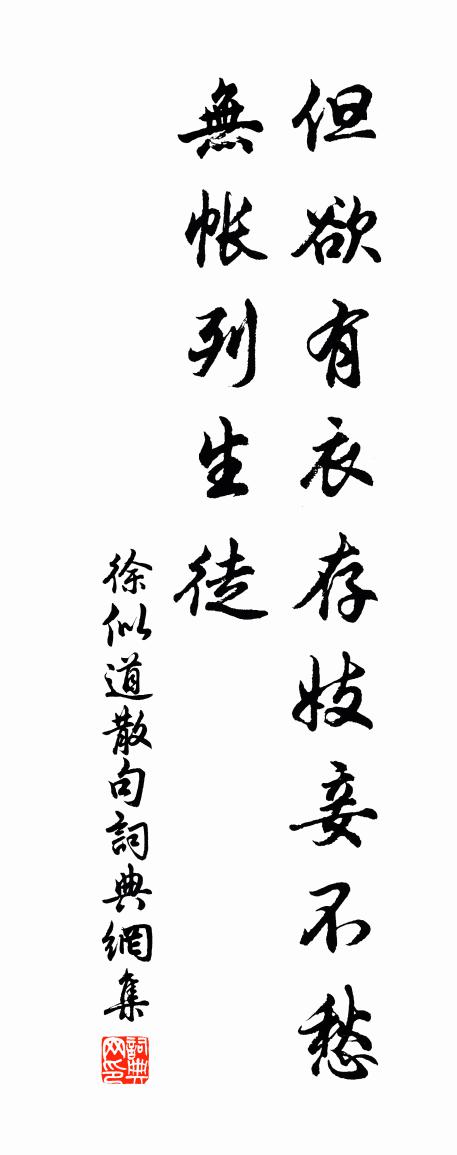 但欲有衣存妓妾不愁
無帐列生徒
徐似道散句詞典網集
詞典网印